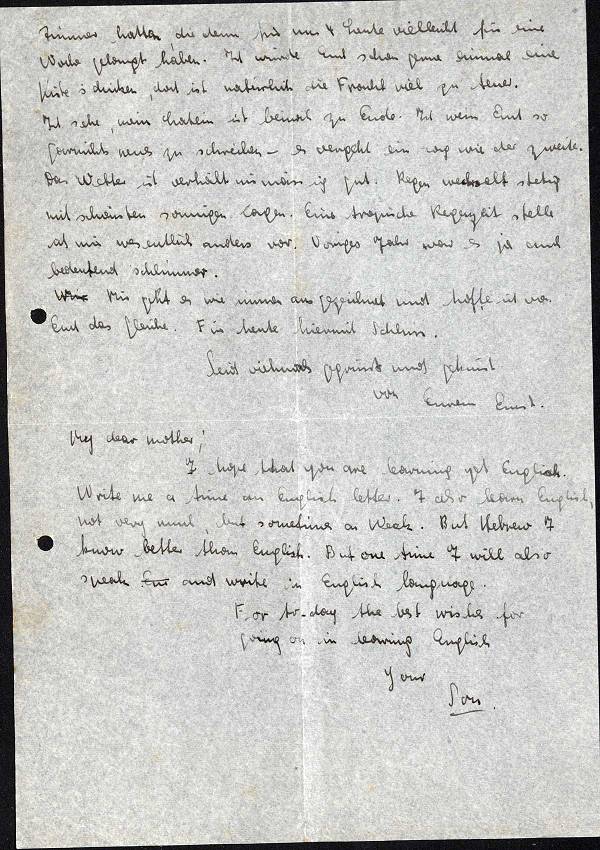 Zimmer hatten, die dann für uns 4 Leute vielleicht für eine
Woche gelangt haben. Ich würde Euch schon gerne einmal eine
Kiste schicken, doch ist natürlich die Fracht viel zu teuer.
Ich sehe, mein Latein ist bereits zu Ende. Ich weiss Euch so
garnichts neues zu schreiben – es vergeht ein Tag wie der zweite.
Das Wetter ist verhältnismässig gut. Regen wechselt stetig
mit schönsten sonnigen Tagen. Eine tropische Regenzeit stelle
ich mir wesentlich anders vor. Voriges Jahr war es ja auch
bedeutend schlimmer.
Mir geht es wie immer ausgezeichnet und hoffe ich von
Euch das gleiche. Für heute hiermit Schluss.
Seid vielmals gegrüsst und geküsst
von Eurem Ernst.
My dear mother!
I hope that you are learning yet English.
Write me a time an English letter. I also learn English,
not very much, but sometimes a Week. But Hebrew I
know better than English. But one time I will also
speak En and write in English language.
For to-day the best wishes for
going on in learning English
Your
Son.